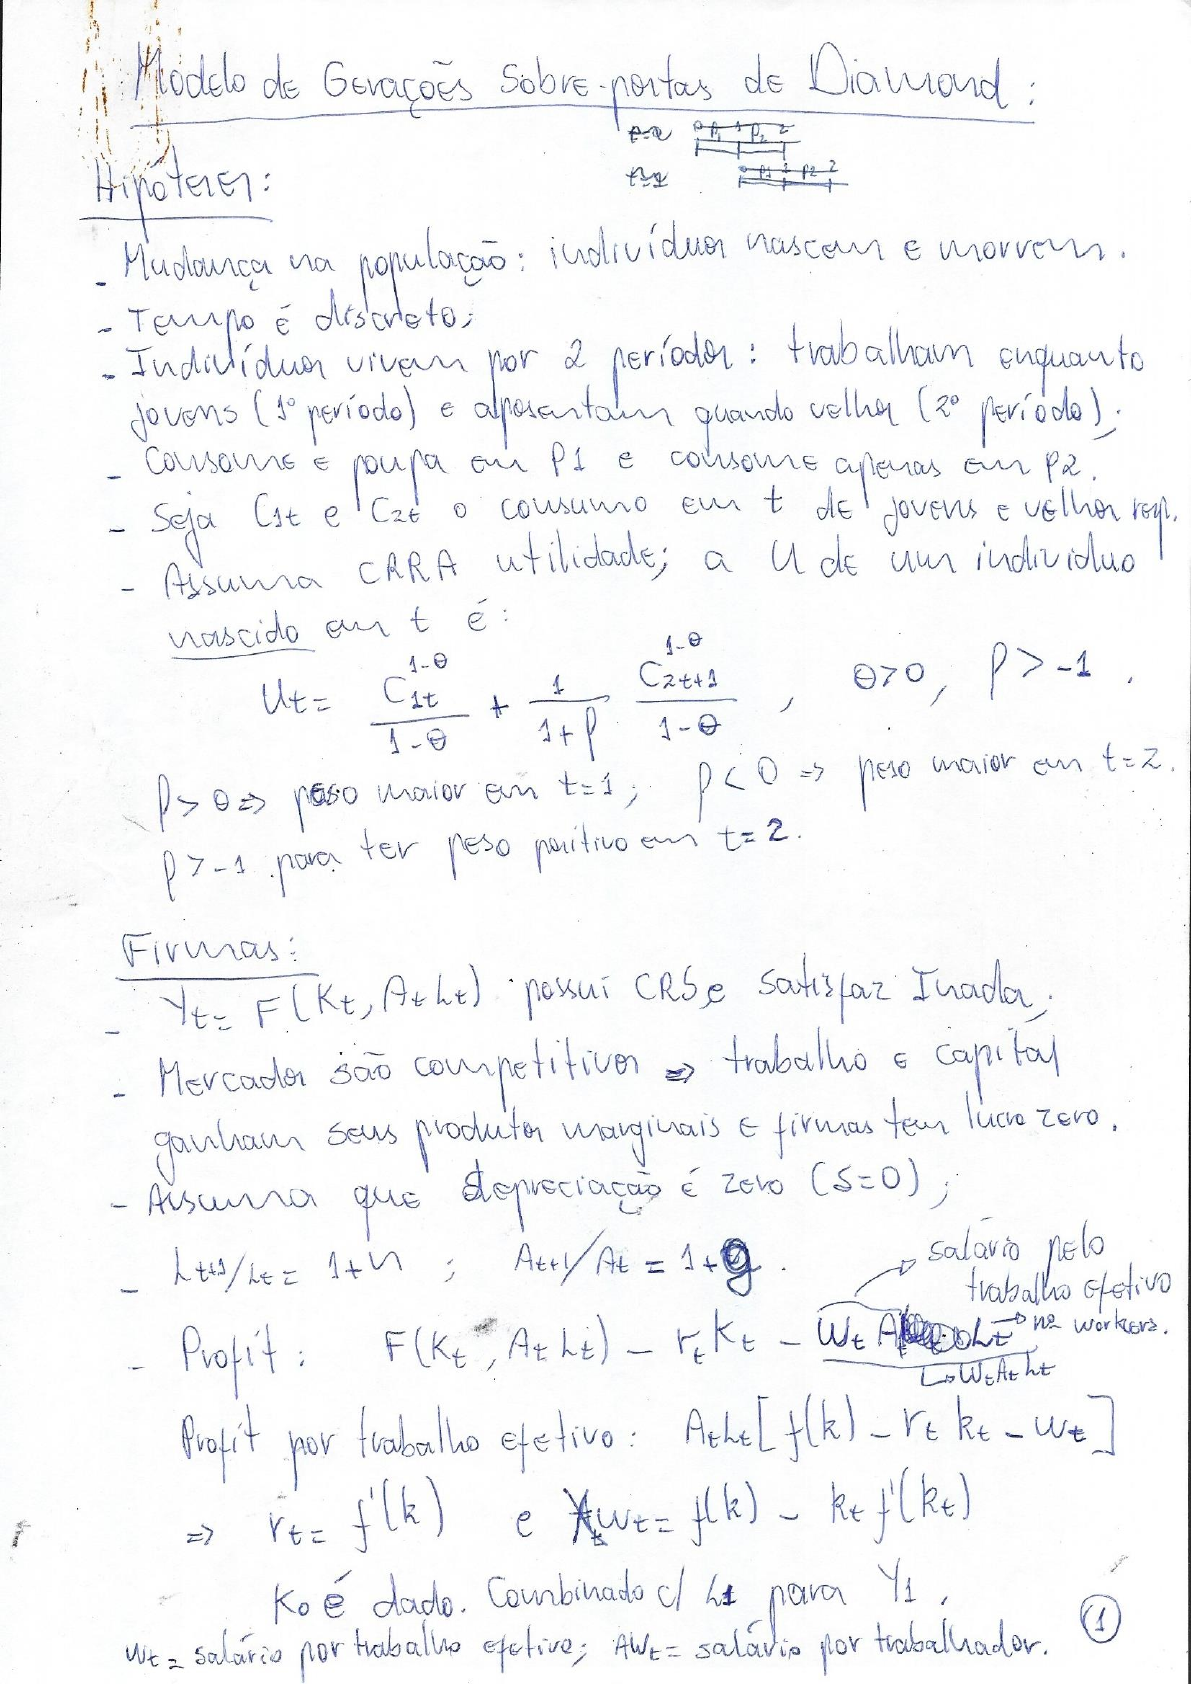 Modelo de Gerações Sobre-postas de Diamond:
0 P1 1 P2 2
0 P1 1 P2 2
Hipóteses:
- Mudança na população: indivíduos nascem e morrem.
- Tempo é discreto;
- Indivíduos vivem por 2 períodos: trabalham enquanto
jovens (1º período) e aposentam quando velhos (2º período);
- Consome e poupa em P1 e consome apenas em P2.
- Seja C1t e C2t o consumo em t de jovens e velhos resp.
- Assuma CRRA utilidade; a U de um individuo
nascido em t é:
Ut = C1t^(1-θ)/(1-θ) + 1/(1+ρ) C2t+1^(1-θ)/(1-θ) , θ>0, ρ>-1 .
ρ>0 => peso maior em t=1; ρ<0 => peso maior em t=2.
ρ>-1 para ter peso positivo em t=2.
Firmas:
- Yt = F(Kt, AtLt) possui CRS e satisfaz Inada;
- Mercados são competitivos => trabalho e capital
ganham seus produtos marginais e firmas tem lucro zero.
- Assuma que depreciação é zero (δ=0);
- Lt+1/Lt = 1+n ; At+1/At = 1+g .
salário pelo
trabalho efetivo
- Profit: F(Kt, AtLt) - rtKt - wt A Lt → nº workers.
↳ wtAtLt
Profit por trabalho efetivo: AtLt[f(k) - rt kt - wt]
=> rt = f'(k) e wt = f(k) - kt f'(kt)
K0 é dado. Combinado c/ L1 para Y1.
wt = salário por trabalho efetivo; Awt = salário por trabalhador.
1